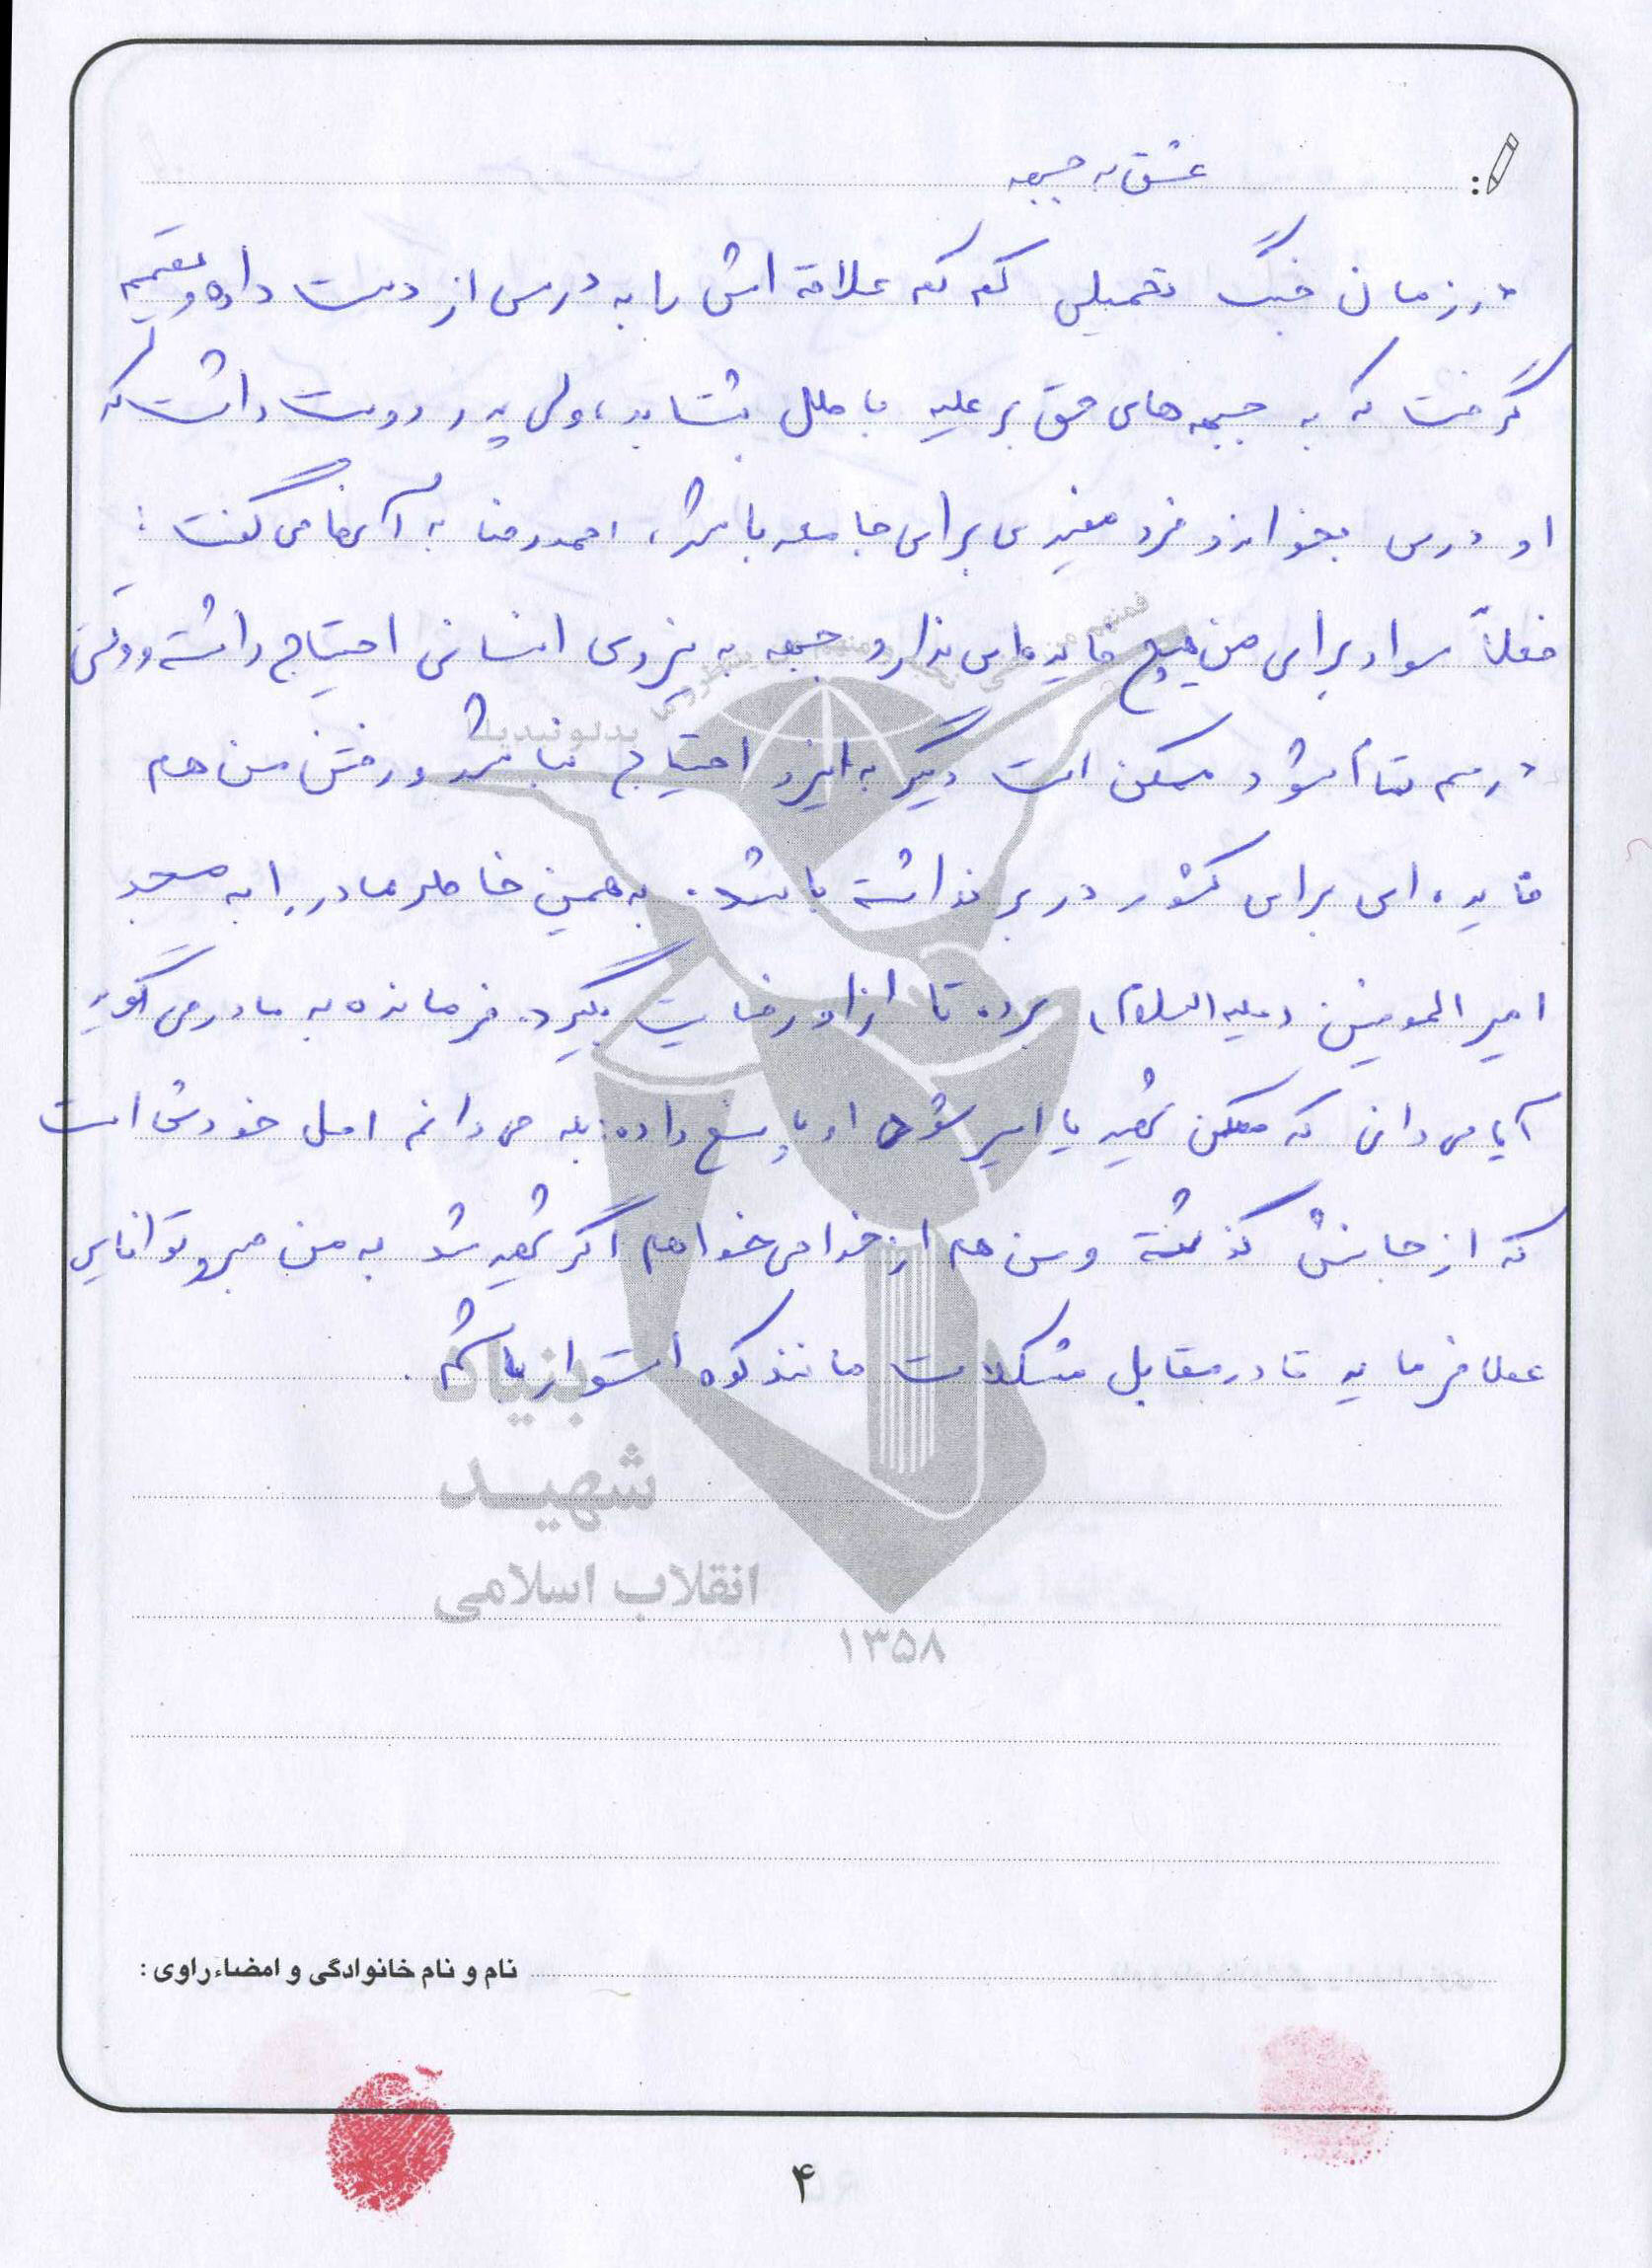 عشق به جبهه
در زمان جنگ تحمیلی کم کم علاقه اش را به درس از دست داده و تصمیم
گرفت که به جبهه های حق بر علیه باطل بشتابد، ولی پدر دوست داشت که
او درس بخواند و فرد مفیدی برای جامعه باشد، احمدرضا به آنها می گفت:
فعلاً سواد برای من هیچ فایده ای ندارد جبهه به نیروی انسانی احتیاج داشته و وقتی
درسم تمام شود ممکن است دیگر به نیرو احتیاج نباشد و رفتن من هم
فایده ای برای کشور در بر نداشته باشد. به همین خاطر مادر را به مسجد
امیر المومنین (علیه السلام) برده تا از او رضایت بگیرد. فرمانده به مادر می گوید
آیا می دانی که ممکن شهید یا اسیر شود او پاسخ داده: بله می دانم اصل خودش است
که از جانش گذشته و من هم از خدا می خواهم اگر شهید شد به من صبر و توانایی
عطا فرماید تا در مقابل مشکلات مانند کوه استوار باشم.
بنیاد
شهید
انقلاب اسلامی
۱۳۵۸
نام و نام خانوادگی و امضاء راوی:
۴